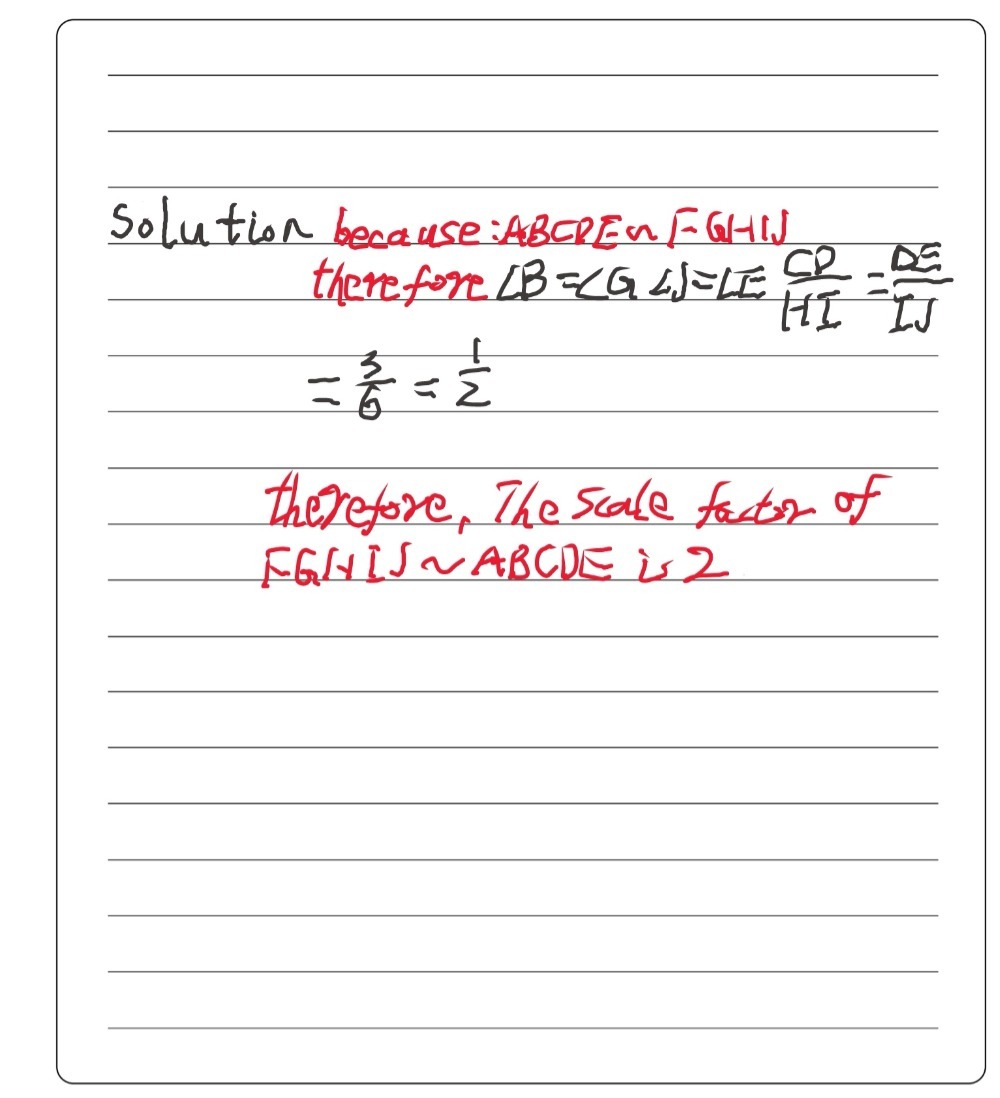 Solution because: ABCDE ∽ FGHIJ
therefore ∠B = ∠G ∠J = ∠E CD/HI = DE/IJ
= 3/6 = 1/2
therefore, The scale factor of
FGHIJ ~ ABCDE is 2